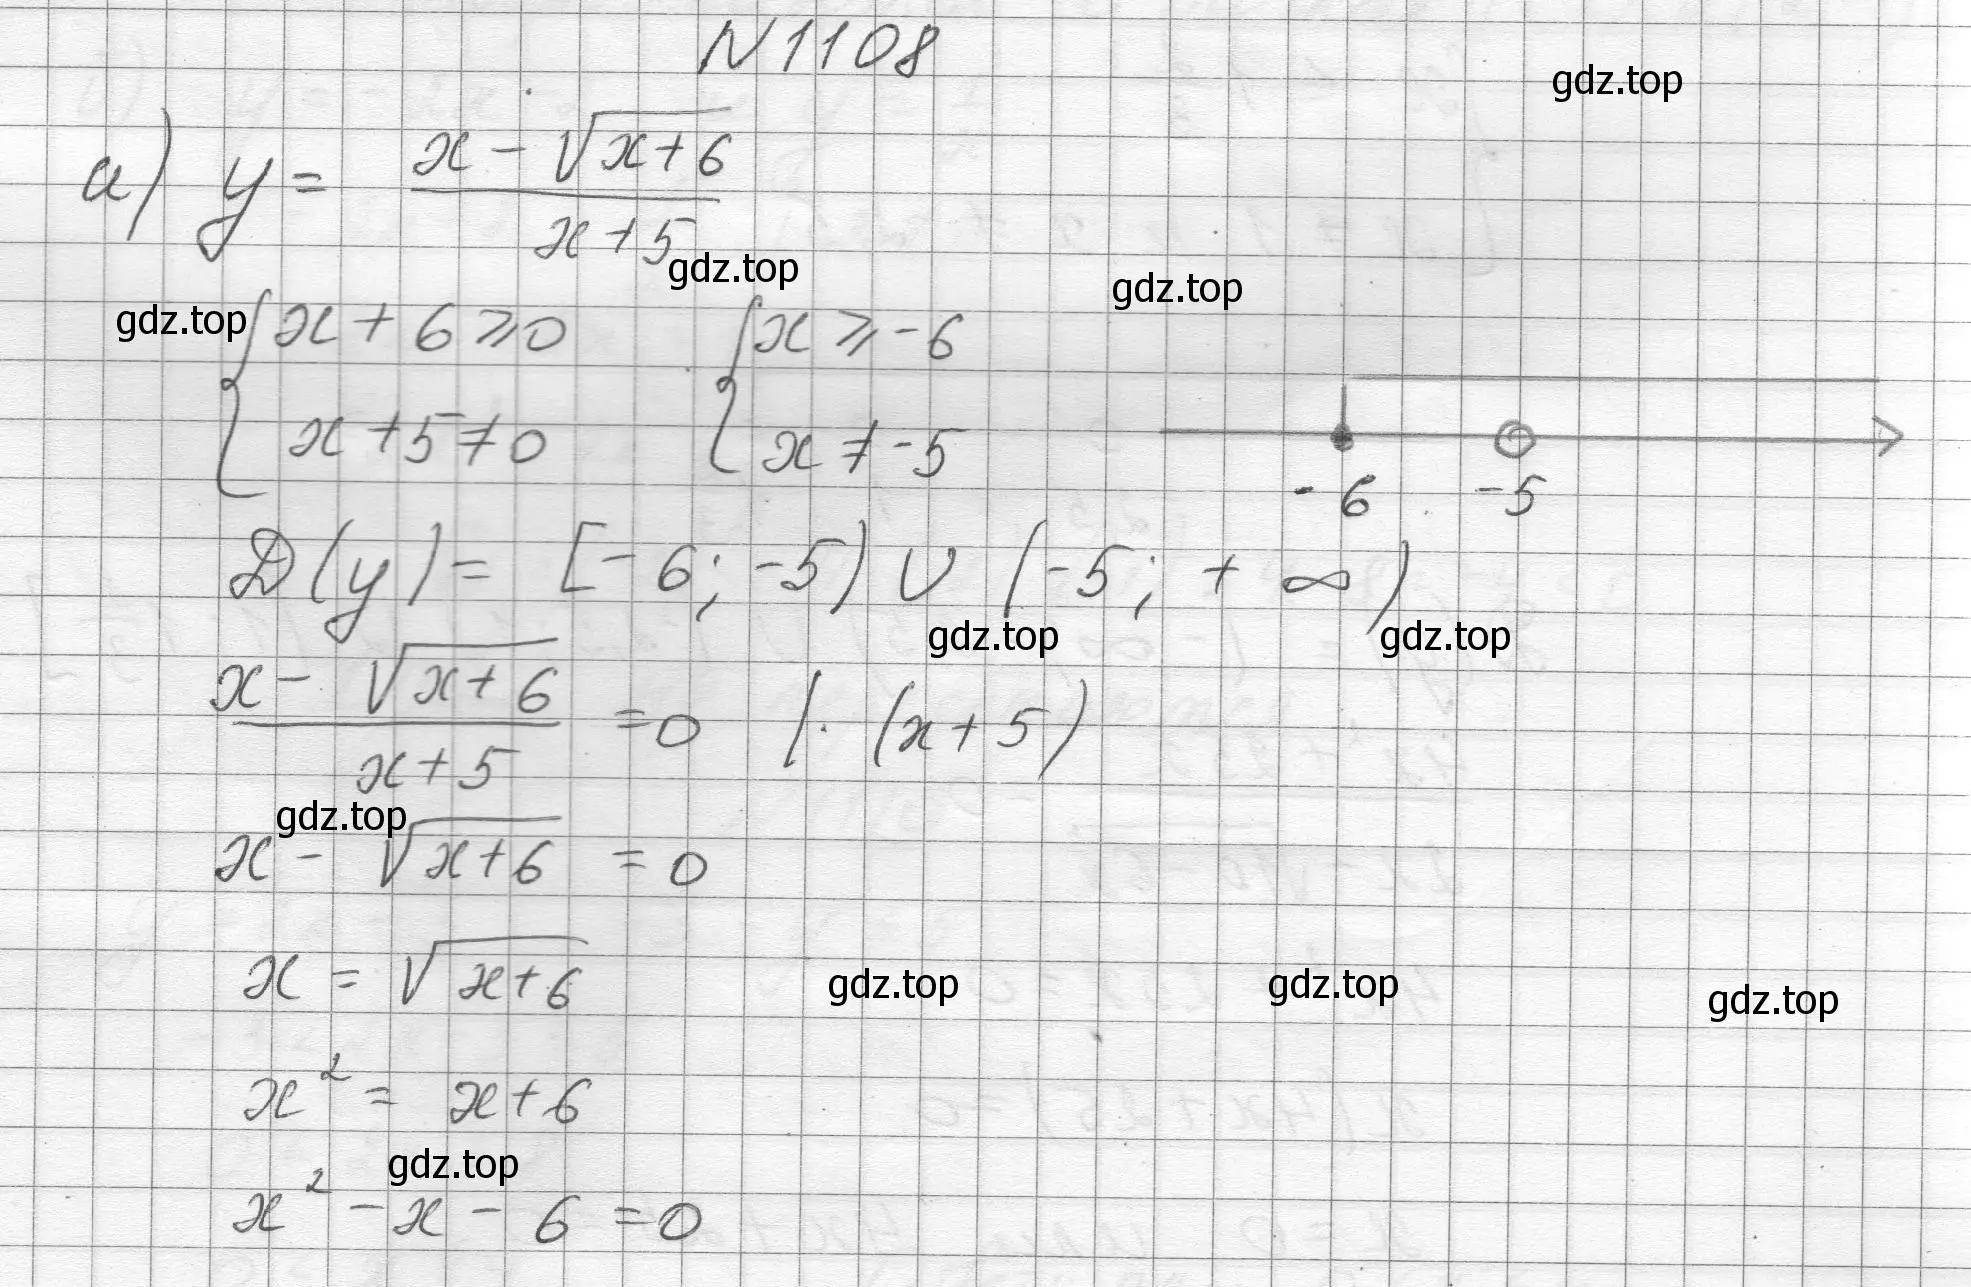 N1108
gdz.top
а) y = (x - √(x+6)) / (x+5)
gdz.top
gdz.top
gdz.top
{ x + 6 ⩾ 0
x + 5 ≠ 0
{ x ⩾ -6
x ≠ -5
-6 -5
D(y) = [-6; -5) ∪ (-5; +∞)
gdz.top gdz.top
(x - √(x+6)) / (x+5) = 0 | · (x+5)
gdz.top
x - √(x+6) = 0
x = √(x+6)
gdz.top gdz.top gdz.top
x² = x+6
gdz.top
x² - x - 6 = 0